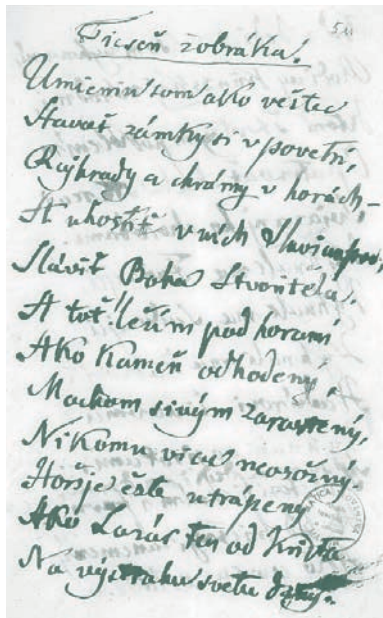 50
Pieseň žobráka.
Umiemu som ako veštec
Stavať zámky si v povetrí,
Rajhrady a chrámy v horách,
A uhostiť v nich
Sláviť Boha Stvoriteľa,
A toť! ležím pod horami
Ako kameň odhodený,
Machom sivým zarastený,
Nikomu viac neozorný.
Horšje ešte utrápený
Ako Lazár ten od Krista
Na výstrahu svetu daný.